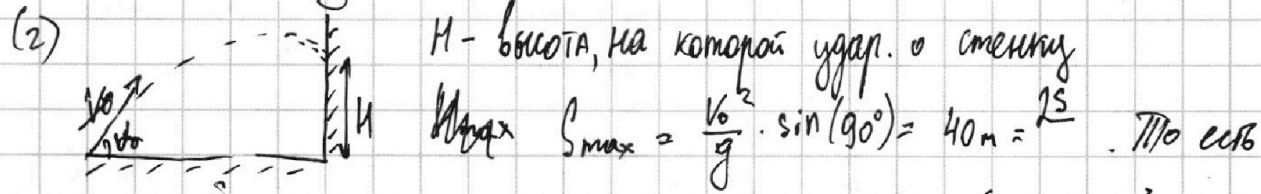 (2) H - высота, на которой удар. о стенку
V₀ α₀ H Smax = V₀²/g · sin(90°) = 40м = 2S . То есть